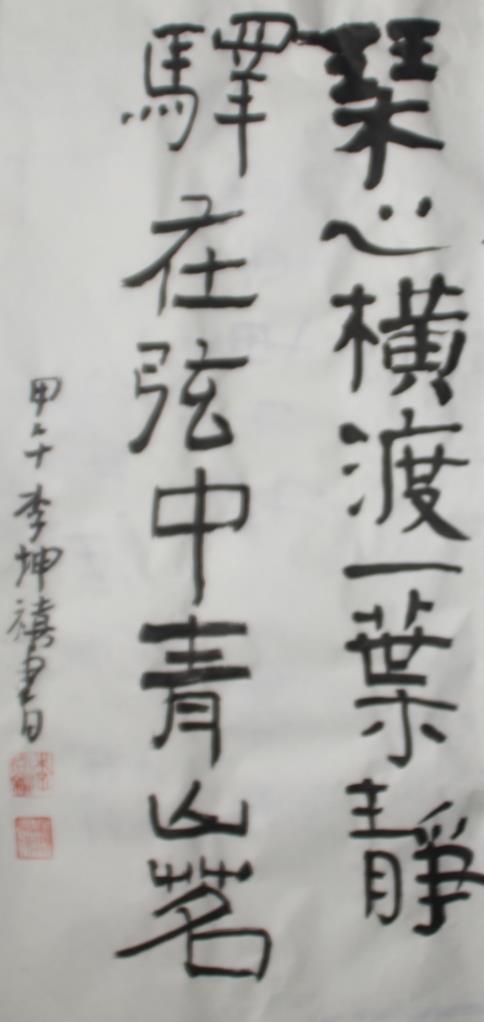 琹心橫渡一葉靜
驛在弦中青山茗
甲午李坤禧書